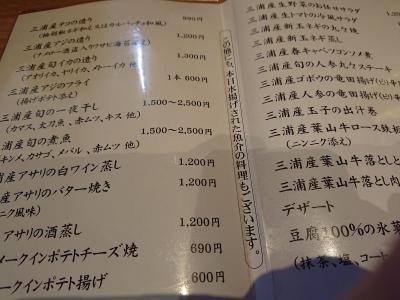 三浦産タコの造り 890円
三浦産アジの造り 1,200円
三浦産旬イカの造り 1,300円
(アオリイカ、ヤリイカ、スミイカ 他)
三浦産アジのフライ 1本 600円
(揚げポテト添え)
三浦産旬の一夜干し 1,500〜2,500円
(カマス、太刀魚、赤ムツ、キス 他)
三浦産旬の煮魚 1,500〜2,500円
キンメ、カサゴ、メバル、赤ムツ 他)
産アサリの白ワイン蒸し 1,200円
産アサリのバター焼き 1,200円
ンニク風味)
アサリの酒蒸し 1,200円
メークインポテトチーズ焼 690円
ークインポテト揚げ 600円
この他にも、本日水揚げされた魚介の料理もございます。
三浦産生野菜のお任せサラダ
三浦産生トマトの冷風サラダ
三浦産新玉ネギの丸ごと焼
三浦産新玉ネギ蒸し
三浦産春キャベツコンソメ煮
三浦産旬の人参丸ごステーキ
三浦産ゴボウの竜田揚げ(ピリ辛
三浦産人参の竜田揚(ピリ辛
三浦産玉子の出汁巻
三浦産葉山牛ロース鉄板
(ニンニク添え)
三浦産葉山牛落としと
三浦産葉山牛落とし肉
デザート
豆腐100%の氷菓
(抹茶、塩、コート